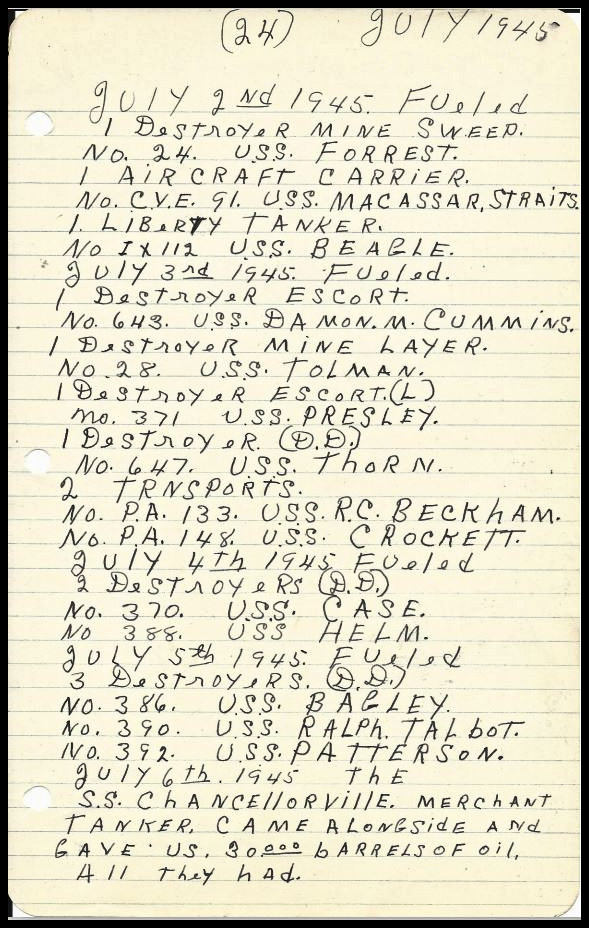 (24) JULY 1945
JULY 2nd 1945. FUeled
1 DestroyeR MINE SWEEP.
No. 24. U.S.S. FORREST.
1 AIRCRAFT CARRIER.
No. C.V.E. 91. U.S.S. MACASSAR, STRAITS.
1. LIBeRTY TANKER.
No IX112 U.S.S. BEAGLE.
JULY 3rd 1945. FUeled.
1 DestroyeR ESCORT.
No. 643. U.S.S. DAMON. M. CUMMiNS.
1 DestroyeR MINE LAYER.
No. 28. U.S.S. TOLMAN.
1 DestroyeR ESCORT. (L)
No. 371 U.S.S. PRESLEY.
1 DestroyeR. (D.D.)
No. 647. U.S.S. ThoRN.
2 TRNSPORTS.
No. P.A. 133. U.S.S. R.C. BECKhAM.
No. P.A. 148. U.S.S. CROCKETT.
JULY 4th 1945 FUeled
2 DestroyeRs (D.D.)
No. 370. U.S.S. CASE.
No 388. USS HELM.
JULY 5th 1945. FUeled
3 DestroyeRS. (D.D.)
No. 386. U.S.S. BAGLEY.
No. 390. U.S.S. RALPh. TALbot.
No. 392. U.S.S. PATTERSON.
JULY 6th. 1945 ThE
S.S. ChANCEllORVillE. MERCHANT
TANKER. CAME ALONGSide ANd
GAVE US. 30000 bARRELS OF Oil,
All they had.